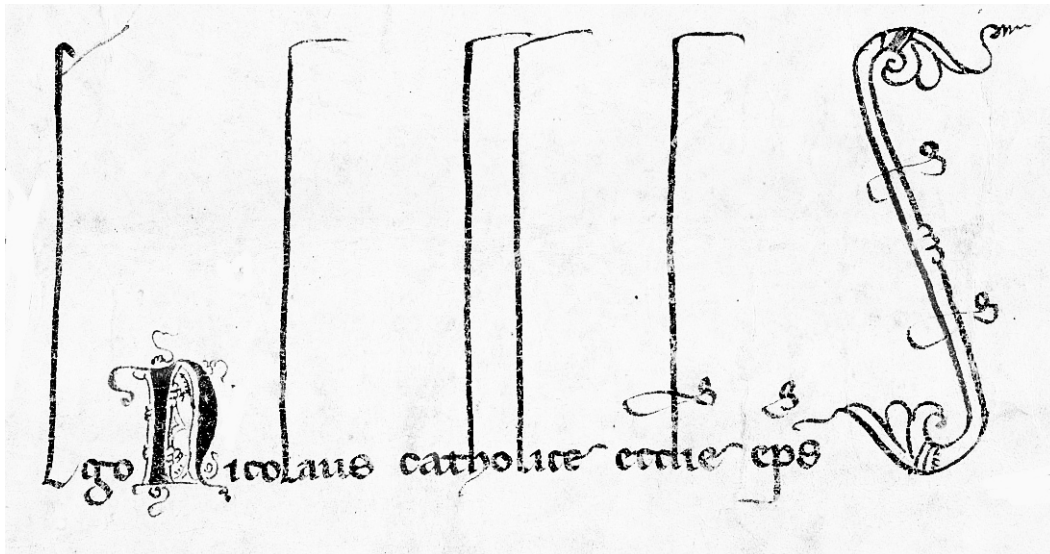 Ego Nicolaus catholice eccl̄ie ep̄s